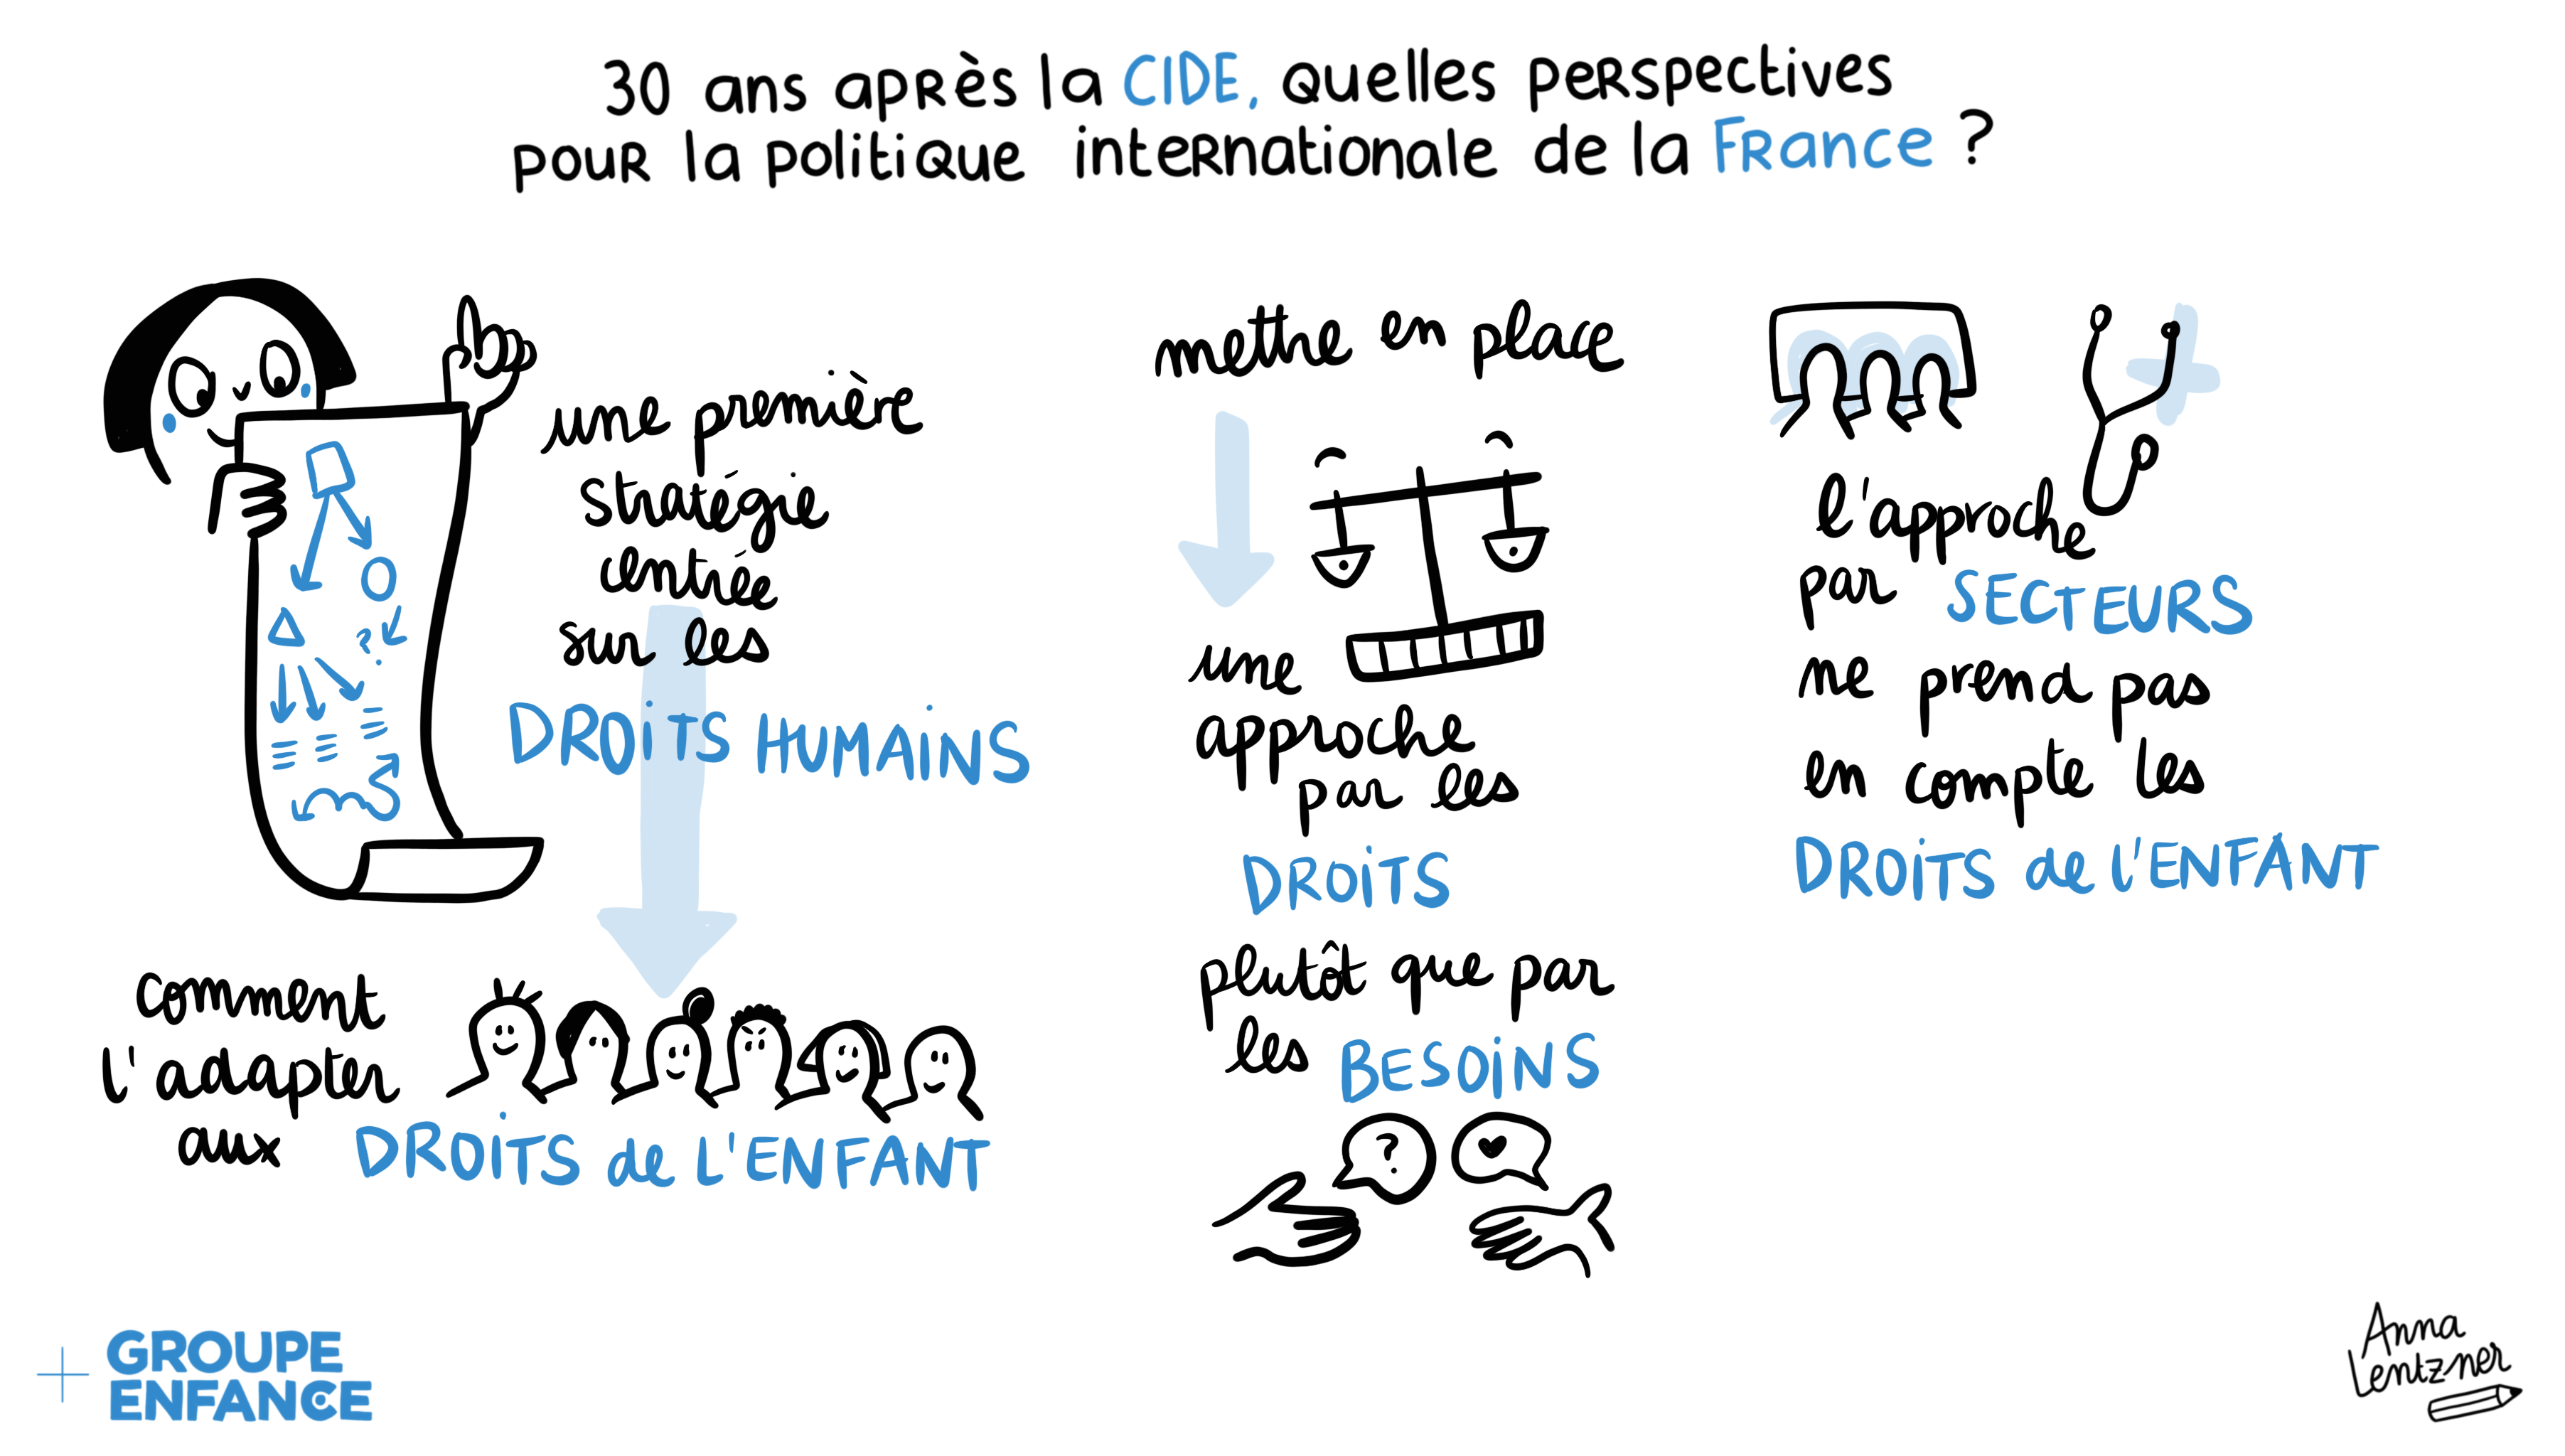 30 ans après la CIDE, quelles perspectives
pour la politique internationale de la France ?
une première
stratégie
centrée
sur les
DROITS HUMAINS
comment
l'adapter
aux DROITS de L'ENFANT
mettre en place
une
approche
par les
DROITS
plutôt que par
les BESOINS
?
l'approche
par SECTEURS
ne prend pas
en compte les
DROITS de l'ENFANT
?
+ GROUPE
ENFANCE
Anna
Lentzner